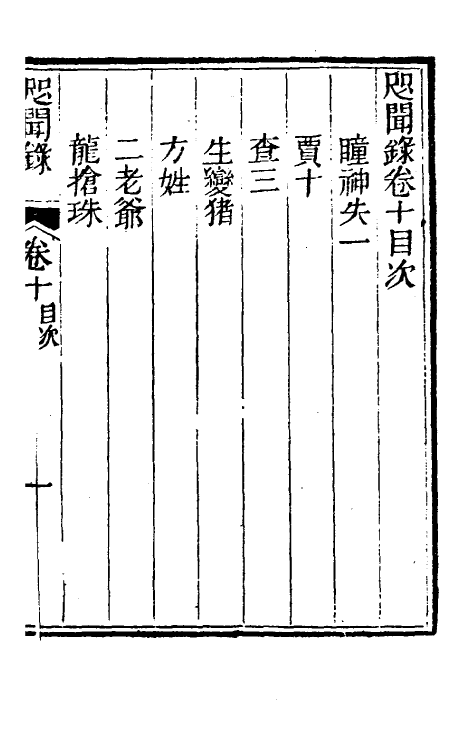 咫聞錄卷十目次
瞳神失一
賈十
查三
生變猪
方姓
二老爺
龍搶珠
咫聞錄
卷十目次
一